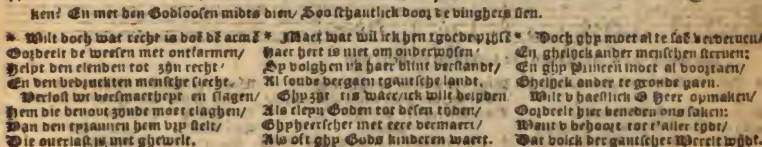 ken? En met den Godloosen midts dien/ Soo schantlick door de vinghers sien.
* Wilt doch wat recht is doẽ dẽ armẽ
Oordeelt de weesen met ontfarmen/
Helpt den elenden tot zijn recht/
En den bedruckten mensche slecht.
Verlost wt versmaetheyt en slagen/
Hem die benout zynde moet claghen/
Van den tyrannen hem vry stelt/
Die overlast is met ghewelt.
* Maer wat wil ick hen tgoede
Haer hert is niet om onderwysen/
Sy volghen na haer blint verstandt/
Al soude vergaen tgantsche landt.
Ghy zijt tis waer/ick wilt belyden
Als cleyn Goden tot desen tyden/
Ghy heerschet met eere vermaert/
Als oft ghy Gods kinderen waert.
* Doch ghy moet al te saẽ
En ghelyck ander menschen sterven:
En ghy Princen moet al voortaen/
Ghelyck ander te gronde gaen.
Wilt v haestlick O Heer opmaken/
Oordeelt hier beneden ons saken:
Want v behoort tot t'aller tydt/
Dat volck der gantscher Werelt wydt.